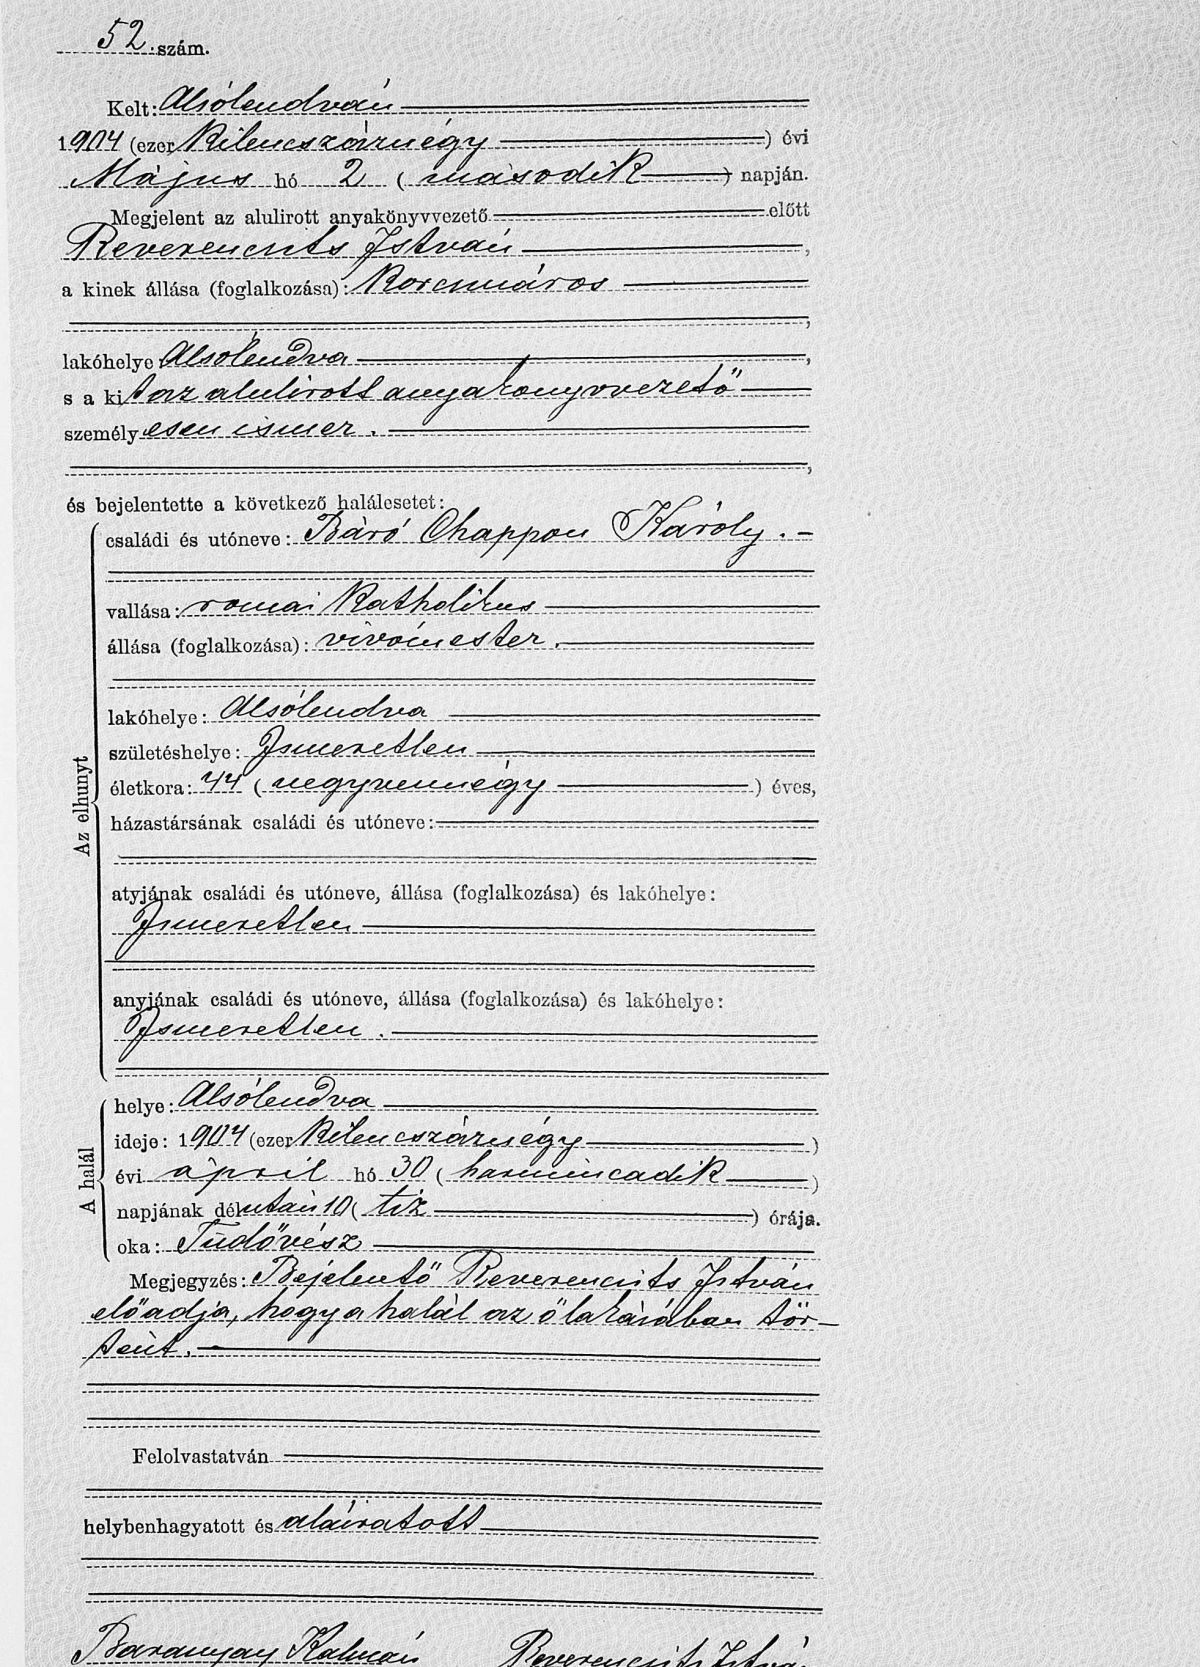 52. szám.
Kelt: Alsólendván
1904 (ezer kilencszáznégy) évi
Május hó 2 (második) napján.
Megjelent az alulirott anyakönyvvezető előtt
Reverencsits István,
a kinek állása (foglalkozása): korcsmáros
,
lakóhelye Alsólendva,
s a kit az alulirott anyakönyvvezető
személyesen ismer.
,
és bejelentette a következő halálesetet:
Az elhunyt
családi és utóneve: Báró Chappon Károly. –
vallása: romai katholikus
állása (foglalkozása): vivómester.
lakóhelye: Alsólendva
születéshelye: Ismeretlen
életkora: 44 (negyvennégy) éves,
házastársának családi és utóneve:
atyjának családi és utóneve, állása (foglalkozása) és lakóhelye:
Ismeretlen
anyjának családi és utóneve, állása (foglalkozása) és lakóhelye:
Ismeretlen.
A halál
helye: Alsólendva
ideje: 1904 (ezer kilencszáznégy)
évi april hó 30 (harmincadik)
napjának délután 10 (tiz) órája.
oka: Tüdővész
Megjegyzés: Bejelentő Reverencsits István
előadja, hogy a halál az ő lakásában tör–
tént. –
Felolvastatván
helybenhagyatott és aláiratott
Baranyay Kálmán Reverencsits István